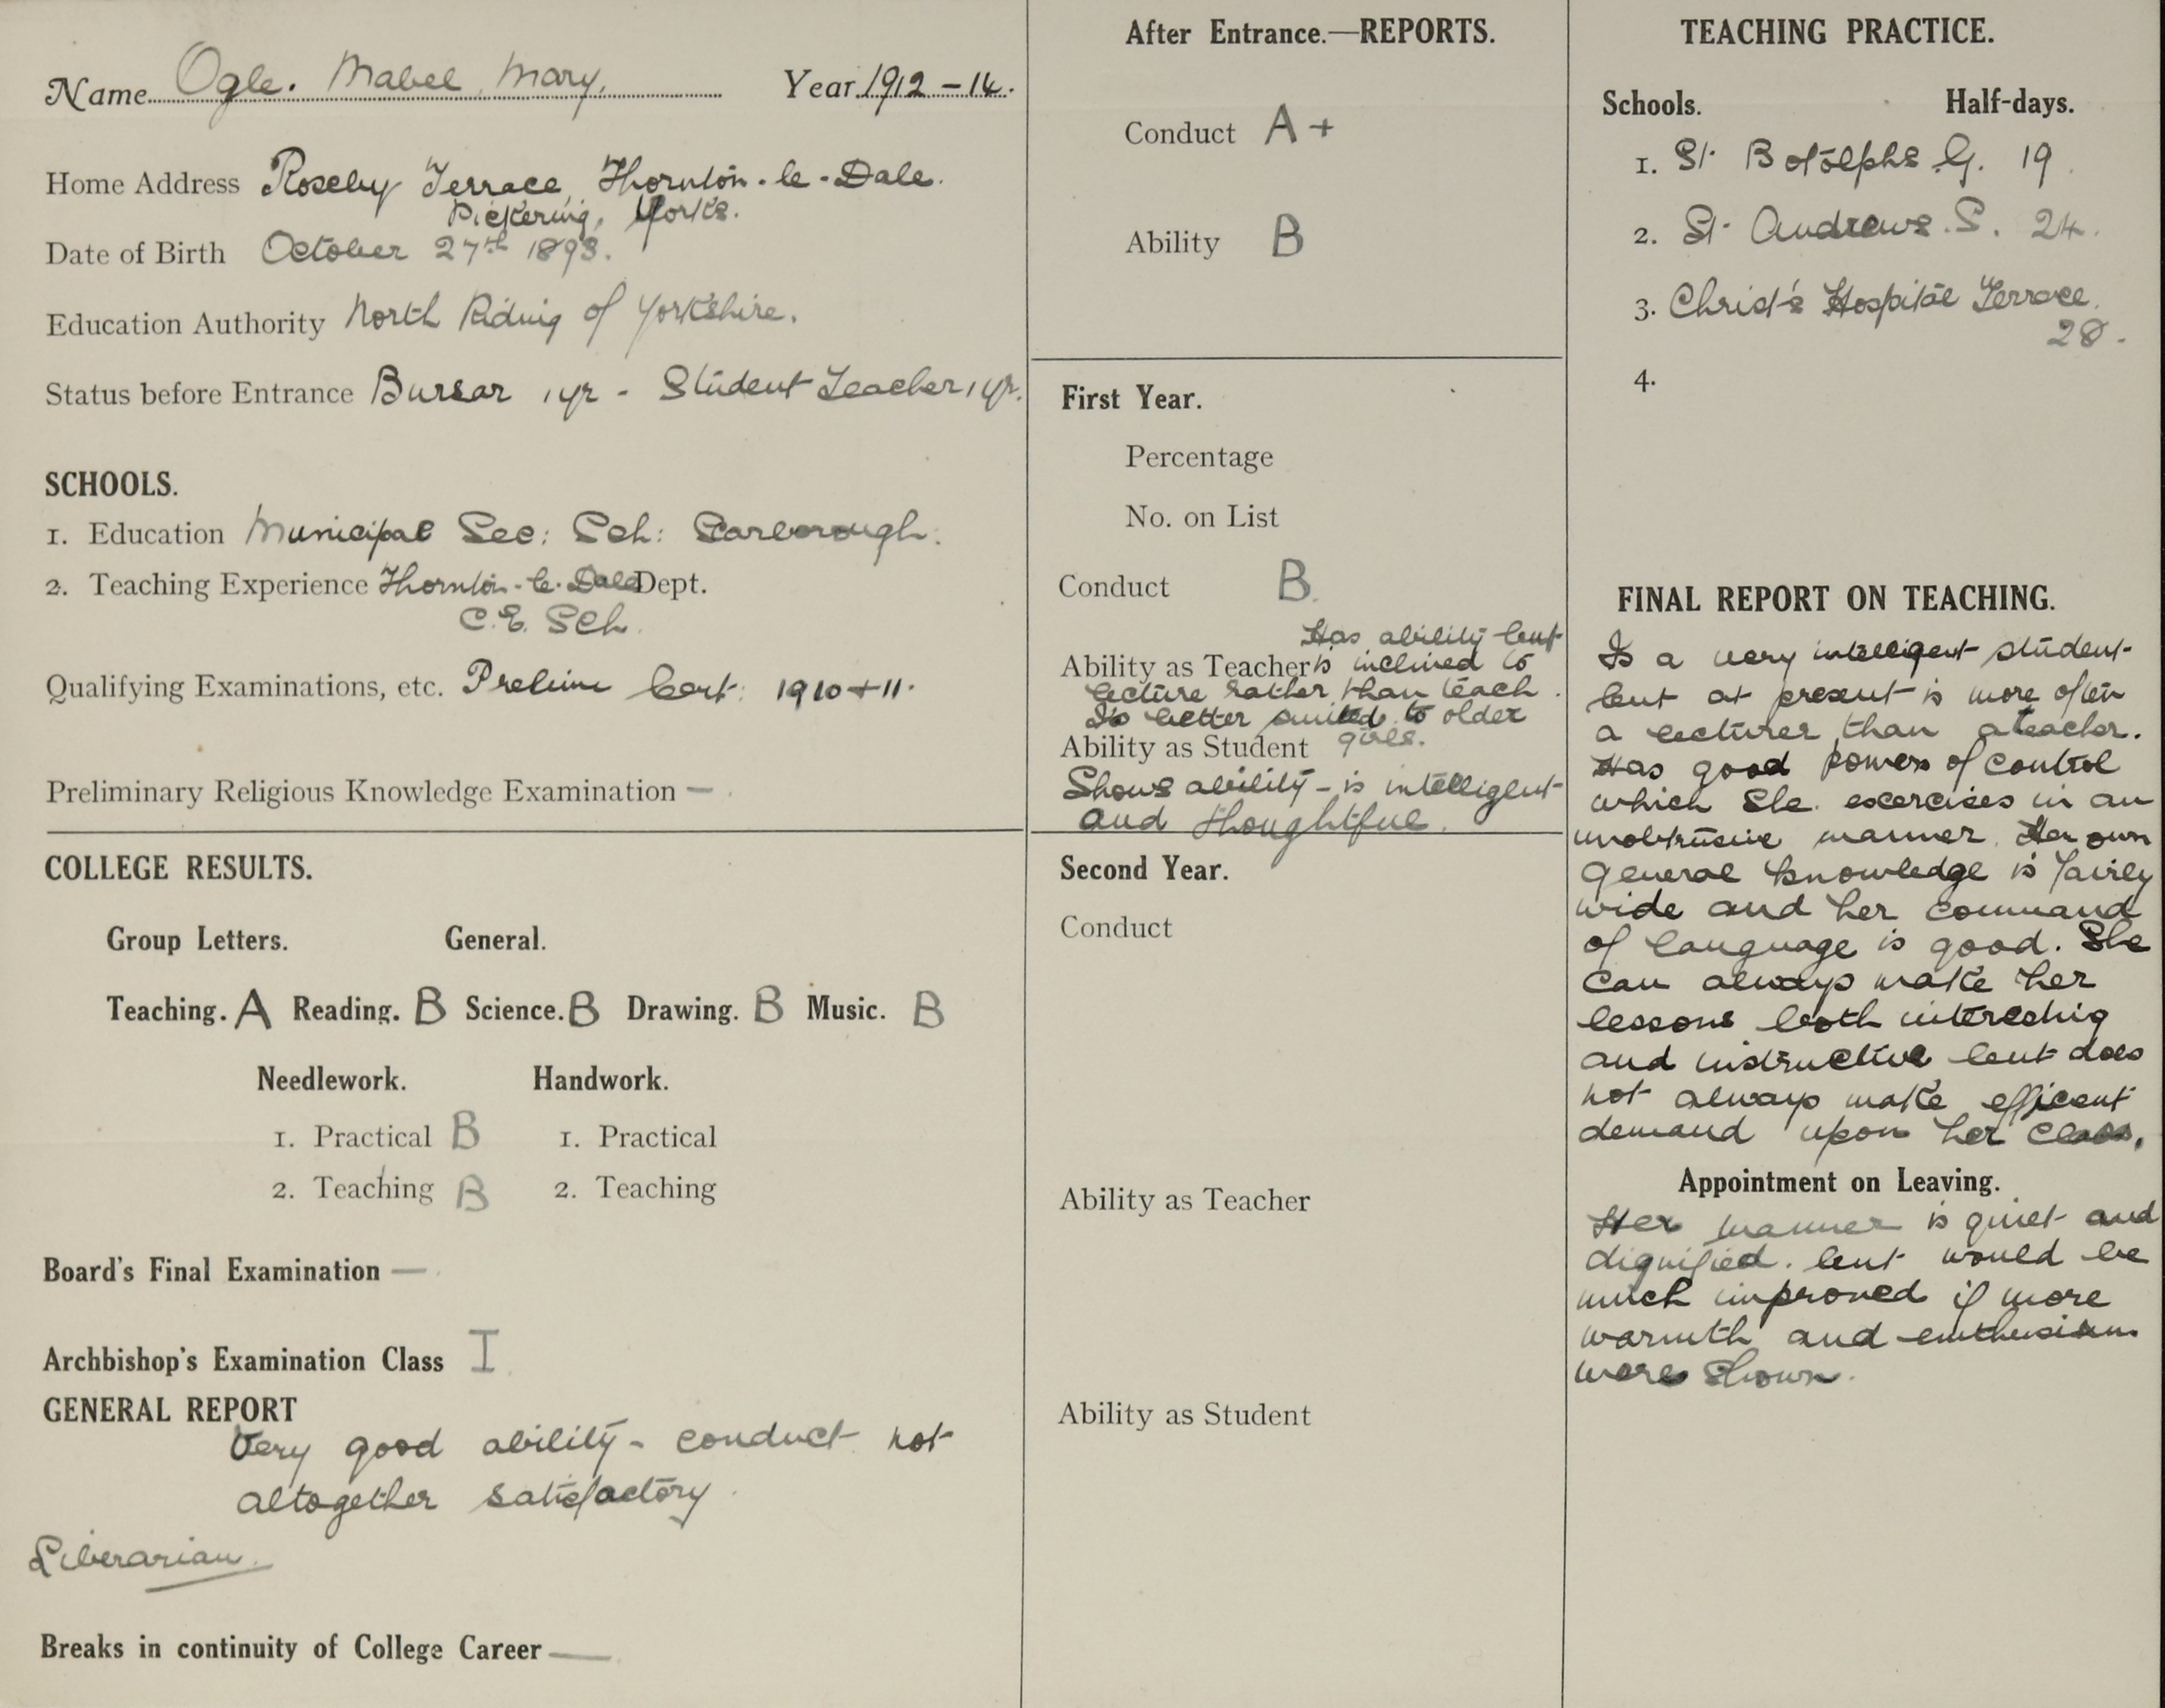 Name Ogle. Mabel Mary. Year 1912-14.
Home Address Roseby Terrace Thornton-le-Dale.
Pickering, Yorks.
Date of Birth October 27th 1893.
Education Authority North Riding of Yorkshire.
Status before Entrance Bursar 1 yr - Student Teacher 1 yr.
SCHOOLS.
1. Education Municipal Sec: Sch: Scarborough.
2. Teaching Experience Thornton-le-Dale Dept.
C.E. Sch.
Qualifying Examinations, etc. Prelim Cert: 1910 + 11.
Preliminary Religious Knowledge Examination —
COLLEGE RESULTS.
Group Letters. General.
Teaching. A Reading. B Science. B Drawing. B Music. B
Needlework. Handwork.
1. Practical B 1. Practical
2. Teaching B 2. Teaching
Board's Final Examination —
Archbishop's Examination Class I
GENERAL REPORT
Very good ability - conduct not
altogether satisfactory.
Liberarian.
Breaks in continuity of College Career —
After Entrance.—REPORTS.
Conduct A+
Ability B
First Year.
Percentage
No. on List
Conduct B.
Has ability but
Ability as Teacher is inclined to
lecture rather than teach.
Is better suited to older
Ability as Student girls.
Shows ability - is intelligent
and thoughtful.
Second Year.
Conduct
Ability as Teacher
Ability as Student
TEACHING PRACTICE.
Schools. Half-days.
1. St. Botolphs G. 19
2. St. Andrews. S. 24.
3. Christ's Hospital Terrace.
28.
4.
FINAL REPORT ON TEACHING.
Is a very intelligent student
but at present is more often
a lecturer than a teacher.
Has good powers of control
which she exercises in an
unobtrusive manner. Her own
general knowledge is fairly
wide and her command
of language is good. She
can always make her
lessons both interesting
and instructive but does
not always make efficent
demand upon her class.
Appointment on Leaving.
Her manner is quiet and
dignified. but would be
much improved if more
warmth and enthusiasm
were shown.